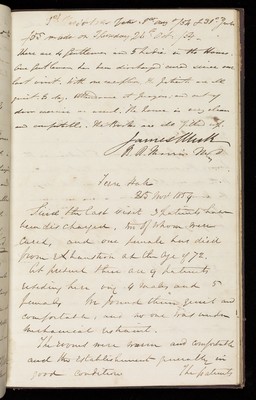 made on Thursday 26th Oct. 54.
There are 4 gentlemen and 5 ladies in the House.
One gentleman has been discharged cured since our
last visit. With one exception the patients are all
quiet to day. Attendance at prayers, and out of
door exercise as usual. The house is very clean
and comfortable. The Books are all filled up.
James
Mus
25 Nov 1854
Since the last visit 3 patients have
been discharged, two of whom were
Cured, and one female has died
from exhaustion at the age of 72.
At present there are 9 patients
residing here viz 4 males and 5
females. We found them quiet and
comfortable, and no one was under
mechanical restraint.
The rooms were warm and comfortable
and the establishment generally in
good condition The patients